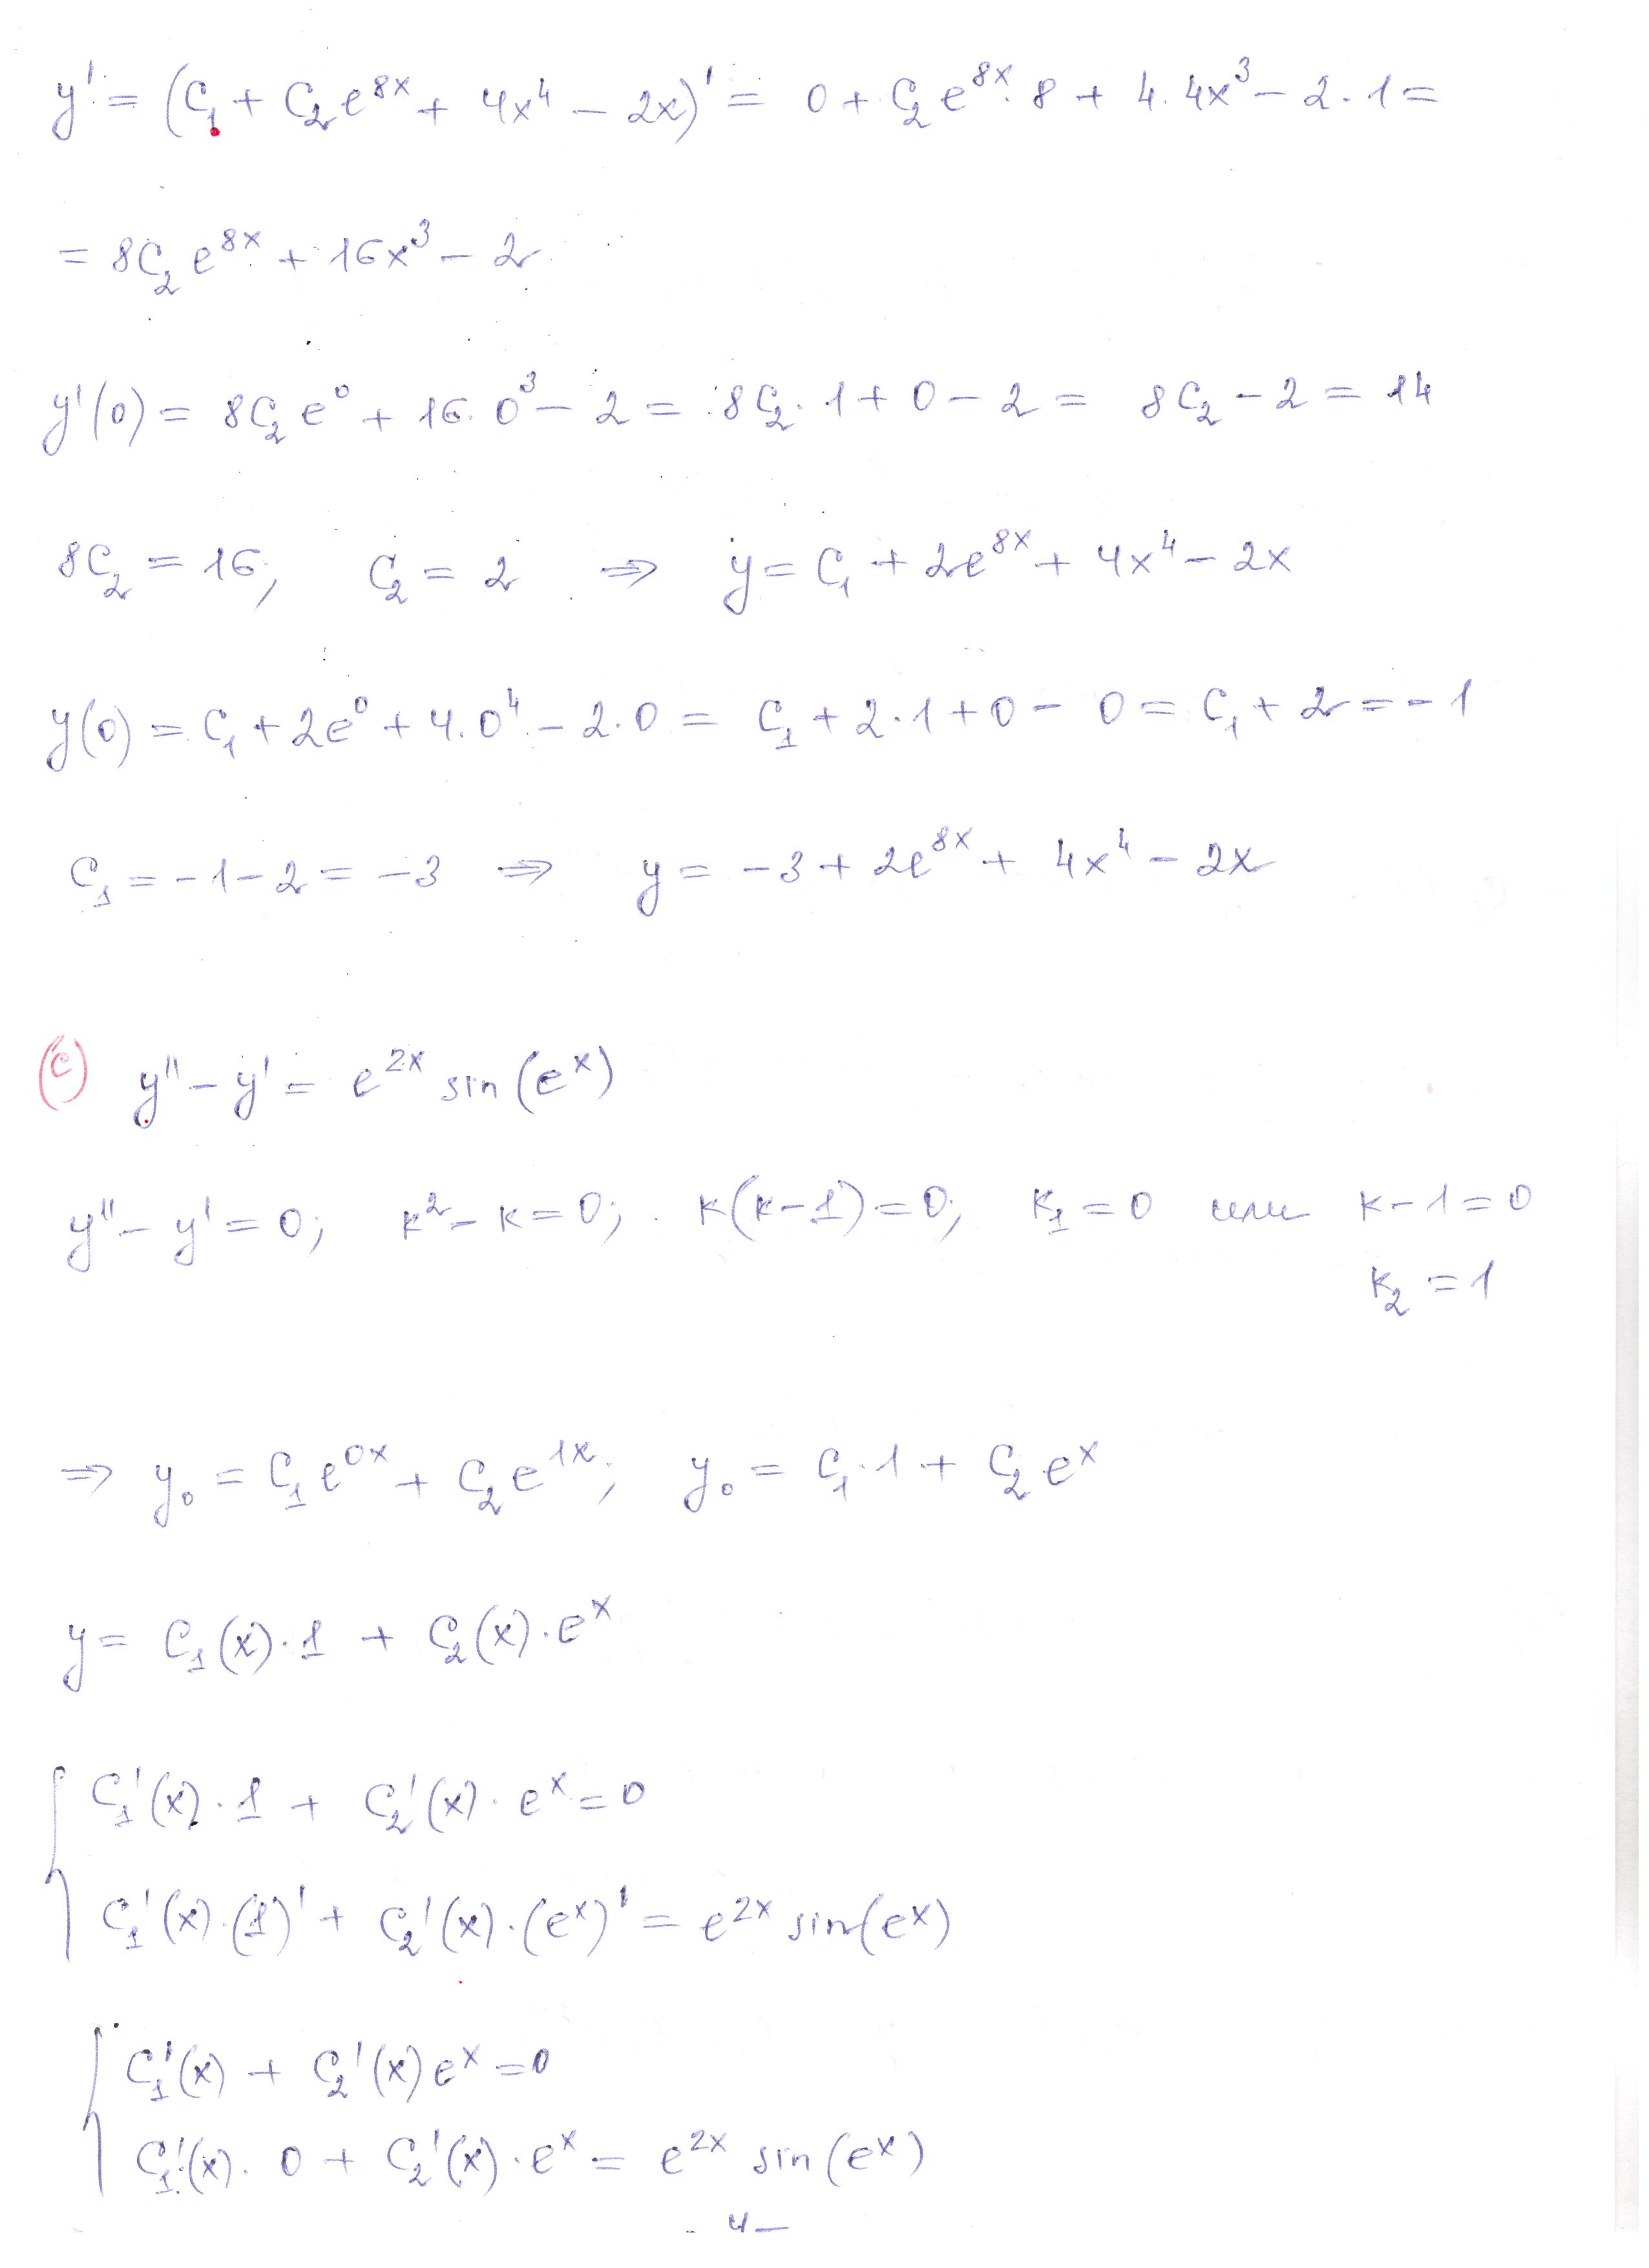 y' = (C₁ + C₂e^{8x} + 4x⁴ – 2x)' = 0 + C₂e^{8x}·8 + 4·4x³ – 2·1 =
= 8C₂e^{8x} + 16x³ – 2
y'(0) = 8C₂e⁰ + 16·0³ – 2 = 8C₂·1 + 0 – 2 = 8C₂ – 2 = 14
8C₂ = 16; C₂ = 2 ⇒ y = C₁ + 2e^{8x} + 4x⁴ – 2x
y(0) = C₁ + 2e⁰ + 4·0⁴ – 2·0 = C₁ + 2·1 + 0 – 0 = C₁ + 2 = –1
C₁ = –1 – 2 = –3 ⇒ y = –3 + 2e^{8x} + 4x⁴ – 2x
(c) y'' – y' = e^{2x} sin(e^x)
y'' – y' = 0; k² – k = 0; k(k–1) = 0; k₁ = 0 или k – 1 = 0
k₂ = 1
⇒ y₀ = C₁e^{0x} + C₂e^{1x}; y₀ = C₁·1 + C₂e^x
y = C₁(x)·1 + C₂(x)·e^x
C₁'(x)·1 + C₂'(x)·e^x = 0
C₁'(x)·(1)' + C₂'(x)·(e^x)' = e^{2x} sin(e^x)
C₁'(x) + C₂'(x)e^x = 0
C₁'(x)·0 + C₂'(x)·e^x = e^{2x} sin(e^x)
– 4 –